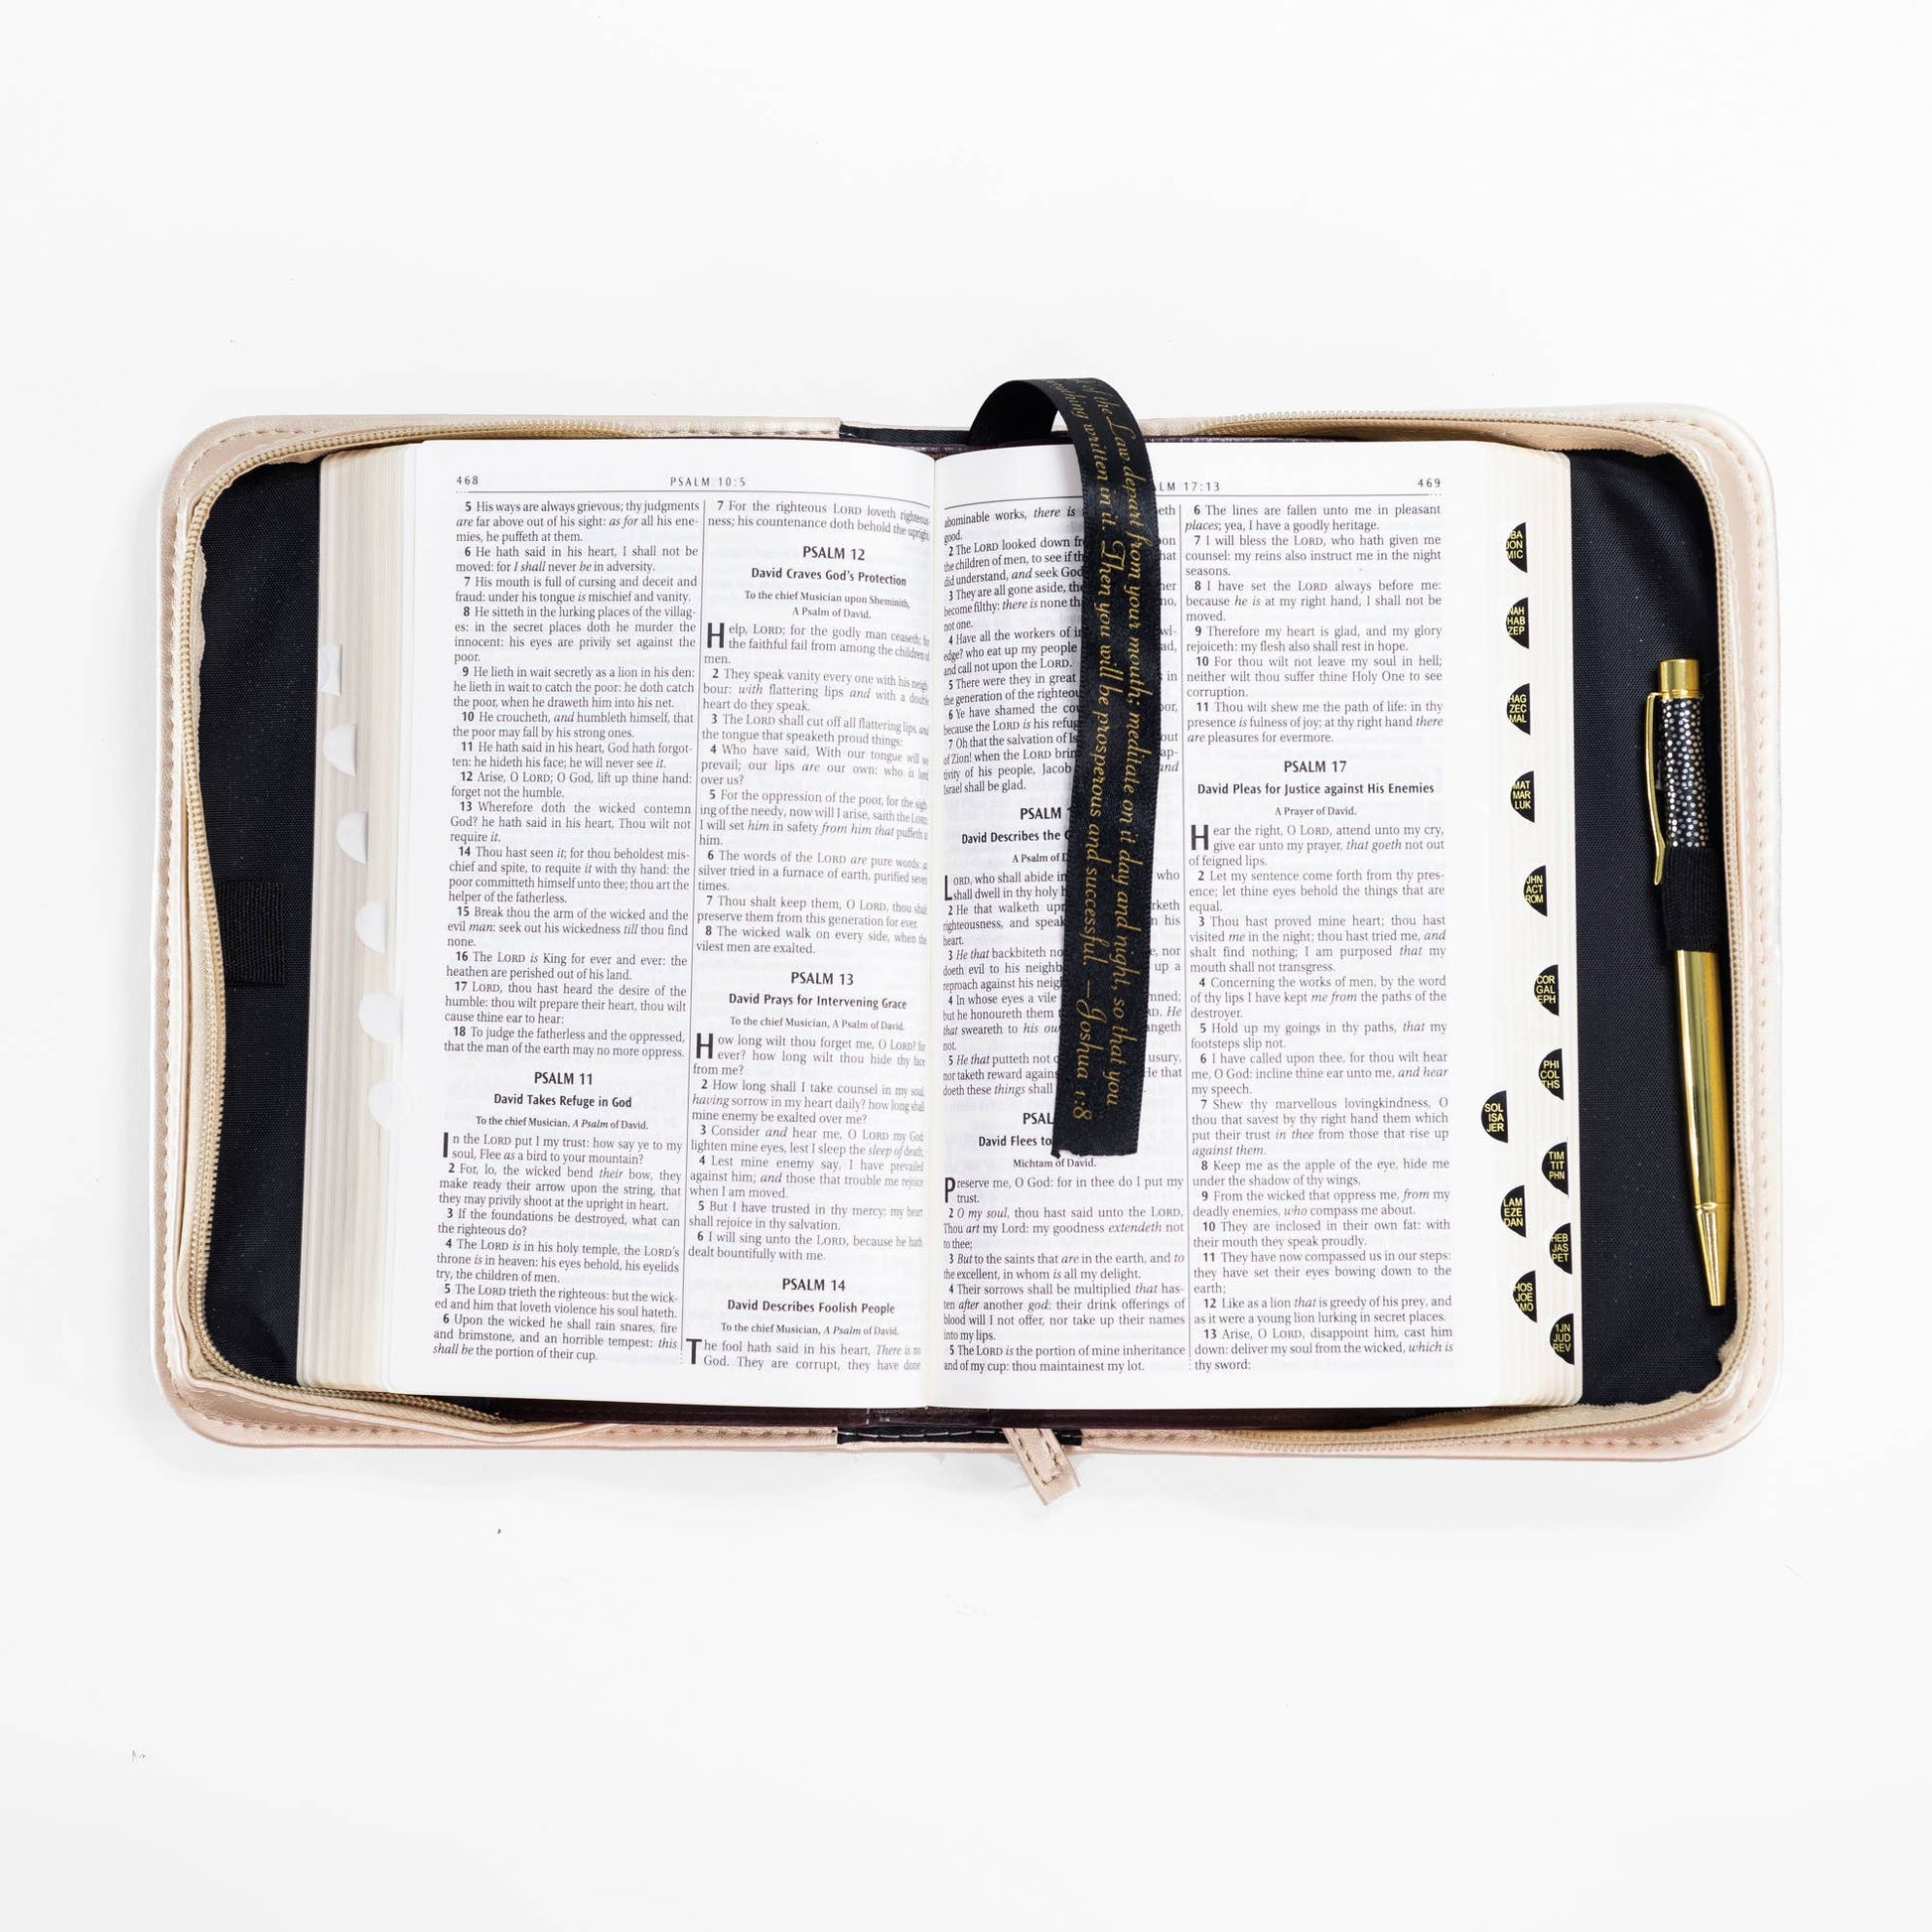 468
PSALM 10:5
5 His ways are always grievous; thy judgments
are far above out of his sight: as for all his ene-
mies, he puffeth at them.
6 He hath said in his heart, I shall not be
moved: for I shall never be in adversity.
7 His mouth is full of cursing and deceit and
fraud: under his tongue is mischief and vanity.
8 He sitteth in the lurking places of the villag-
es: in the secret places doth he murder the
innocent: his eyes are privily set against the
poor.
9 He lieth in wait secretly as a lion in his den:
he lieth in wait to catch the poor: he doth catch
the poor, when he draweth him into his net.
10 He croucheth, and humbleth himself, that
the poor may fall by his strong ones.
11 He hath said in his heart, God hath forgot-
ten: he hideth his face; he will never see it.
12 Arise, O LORD; O God, lift up thine hand:
forget not the humble.
13 Wherefore doth the wicked contemn
God? he hath said in his heart, Thou wilt not
require it.
14 Thou hast seen it; for thou beholdest mis-
chief and spite, to requite it with thy hand: the
poor committeth himself unto thee; thou art the
helper of the fatherless.
15 Break thou the arm of the wicked and the
evil man: seek out his wickedness till thou find
none.
16 The LORD is King for ever and ever: the
heathen are perished out of his land.
17 LORD, thou hast heard the desire of the
humble: thou wilt prepare their heart, thou wilt
cause thine ear to hear:
18 To judge the fatherless and the oppressed,
that the man of the earth may no more oppress.
PSALM 11
David Takes Refuge in God
To the chief Musician, A Psalm of David.
In the LORD put I my trust: how say ye to my
soul, Flee as a bird to your mountain?
2 For, lo, the wicked bend their bow, they
make ready their arrow upon the string, that
they may privily shoot at the upright in heart.
3 If the foundations be destroyed, what can
the righteous do?
4 The LORD is in his holy temple, the LORD's
throne is in heaven: his eyes behold, his eyelids
try, the children of men.
5 The LORD trieth the righteous: but the wick-
ed and him that loveth violence his soul hateth.
6 Upon the wicked he shall rain snares, fire
and brimstone, and an horrible tempest: this
shall be the portion of their cup.
7 For the righteous LORD loveth righteous-
ness; his countenance doth behold the upright.
PSALM 12
David Craves God's Protection
To the chief Musician upon Sheminith,
A Psalm of David.
Help, LORD; for the godly man ceaseth; for
the faithful fail from among the children of
men.
2 They speak vanity every one with his neigh-
bour: with flattering lips and with a double
heart do they speak.
3 The LORD shall cut off all flattering lips, and
the tongue that speaketh proud things:
4 Who have said, With our tongue will we
prevail; our lips are our own: who is lord
over us?
5 For the oppression of the poor, for the sigh-
ing of the needy, now will I arise, saith the LORD;
I will set him in safety from him that puffeth at
him.
6 The words of the LORD are pure words: as
silver tried in a furnace of earth, purified seven
times.
7 Thou shalt keep them, O LORD, thou shalt
preserve them from this generation for ever.
8 The wicked walk on every side, when the
vilest men are exalted.
PSALM 13
David Prays for Intervening Grace
To the chief Musician, A Psalm of David.
How long wilt thou forget me, O LORD? for
ever? how long wilt thou hide thy face
from me?
2 How long shall I take counsel in my soul,
having sorrow in my heart daily? how long shall
mine enemy be exalted over me?
3 Consider and hear me, O LORD my God:
lighten mine eyes, lest I sleep the sleep of death;
4 Lest mine enemy say, I have prevailed
against him; and those that trouble me rejoice
when I am moved.
5 But I have trusted in thy mercy; my heart
shall rejoice in thy salvation.
6 I will sing unto the LORD, because he hath
dealt bountifully with me.
PSALM 14
David Describes Foolish People
To the chief Musician, A Psalm of David.
The fool hath said in his heart, There is no
God. They are corrupt, they have done
LM 17:13
469
abominable works, there is
good.
2 The LORD looked down
the children of men, to see if
did understand, and seek God
3 They are all gone aside,
become filthy: there is none
not one.
4 Have all the workers of
edge? who eat up my people
and call not upon the LORD.
5 There were they in great in
the generation of the
6 Ye have shamed the
because the LORD is his
7 Oh that the salvation of
of Zion! when the LORD
tivity of his people, Jacob and
Israel shall be glad.
PSALM
David Describes the
A Psalm of
LORD, who shall abide in who
shall dwell in thy holy
2 He that walketh
righteousness, and in his
heart.
3 He that backbiteth nor
doeth evil to his up a
reproach against his
4 In whose eyes a vile
but he honoureth them He
that sweareth to his
not.
5 He that putteth not usury,
nor taketh reward He that
doeth these things shall
David Flees to
Michtam of David.
Preserve me, O God: for in thee do I put my
trust.
2 O my soul, thou hast said unto the LORD,
Thou art my Lord: my goodness extendeth not
to thee;
3 But to the saints that are in the earth, and to
the excellent, in whom is all my delight.
4 Their sorrows shall be multiplied that has-
ten after another god: their drink offerings of
blood will I not offer, nor take up their names
into my lips.
5 The LORD is the portion of mine inheritance
and of my cup: thou maintainest my lot.
of the Law depart from your mouth; mediate on it day and night, so that you
everything written in it. Then you will be prosperous and successful. –Joshua 1:8
6 The lines are fallen unto me in pleasant
places; yea, I have a goodly heritage.
7 I will bless the LORD, who hath given me
counsel: my reins also instruct me in the night
seasons.
8 I have set the LORD always before me:
because he is at my right hand, I shall not be
moved.
9 Therefore my heart is glad, and my glory
rejoiceth: my flesh also shall rest in hope.
10 For thou wilt not leave my soul in hell;
neither wilt thou suffer thine Holy One to see
corruption.
11 Thou wilt shew me the path of life: in thy
presence is fulness of joy; at thy right hand there
are pleasures for evermore.
PSALM 17
David Pleas for Justice against His Enemies
A Prayer of David.
Hear the right, O LORD, attend unto my cry,
give ear unto my prayer, that goeth not out
of feigned lips.
2 Let my sentence come forth from thy pres-
ence; let thine eyes behold the things that are
equal.
3 Thou hast proved mine heart; thou hast
visited me in the night; thou hast tried me, and
shalt find nothing; I am purposed that my
mouth shall not transgress.
4 Concerning the works of men, by the word
of thy lips I have kept me from the paths of the
destroyer.
5 Hold up my goings in thy paths, that my
footsteps slip not.
6 I have called upon thee, for thou wilt hear
me, O God: incline thine ear unto me, and hear
my speech.
7 Shew thy marvellous lovingkindness, O
thou that savest by thy right hand them which
put their trust in thee from those that rise up
against them.
8 Keep me as the apple of the eye, hide me
under the shadow of thy wings,
9 From the wicked that oppress me, from my
deadly enemies, who compass me about.
10 They are inclosed in their own fat: with
their mouth they speak proudly.
11 They have now compassed us in our steps:
they have set their eyes bowing down to the
earth;
12 Like as a lion that is greedy of his prey, and
as it were a young lion lurking in secret places.
13 Arise, O LORD, disappoint him, cast him
down: deliver my soul from the wicked, which is
thy sword:
BA
JON
MIC
NAH
HAB
ZEP
HAG
ZEC
MAL
MAT
MAR
LUK
JHN
ACT
ROM
COR
GAL
EPH
PHI
COL
THS
SOL
ISA
JER
TIM
TIT
PHN
LAM
EZE
DAN
HEB
JAS
PET
HOS
JOE
MO
1JN
JUD
REV